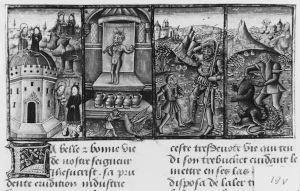 La belle & bonne vie
de nostre seigneur
Ihesucrist sa pru
dente erudition industrie
ceste vie qui ten
di son trebuchet cuidant le
mettre en ses las
disposa de laler
19v